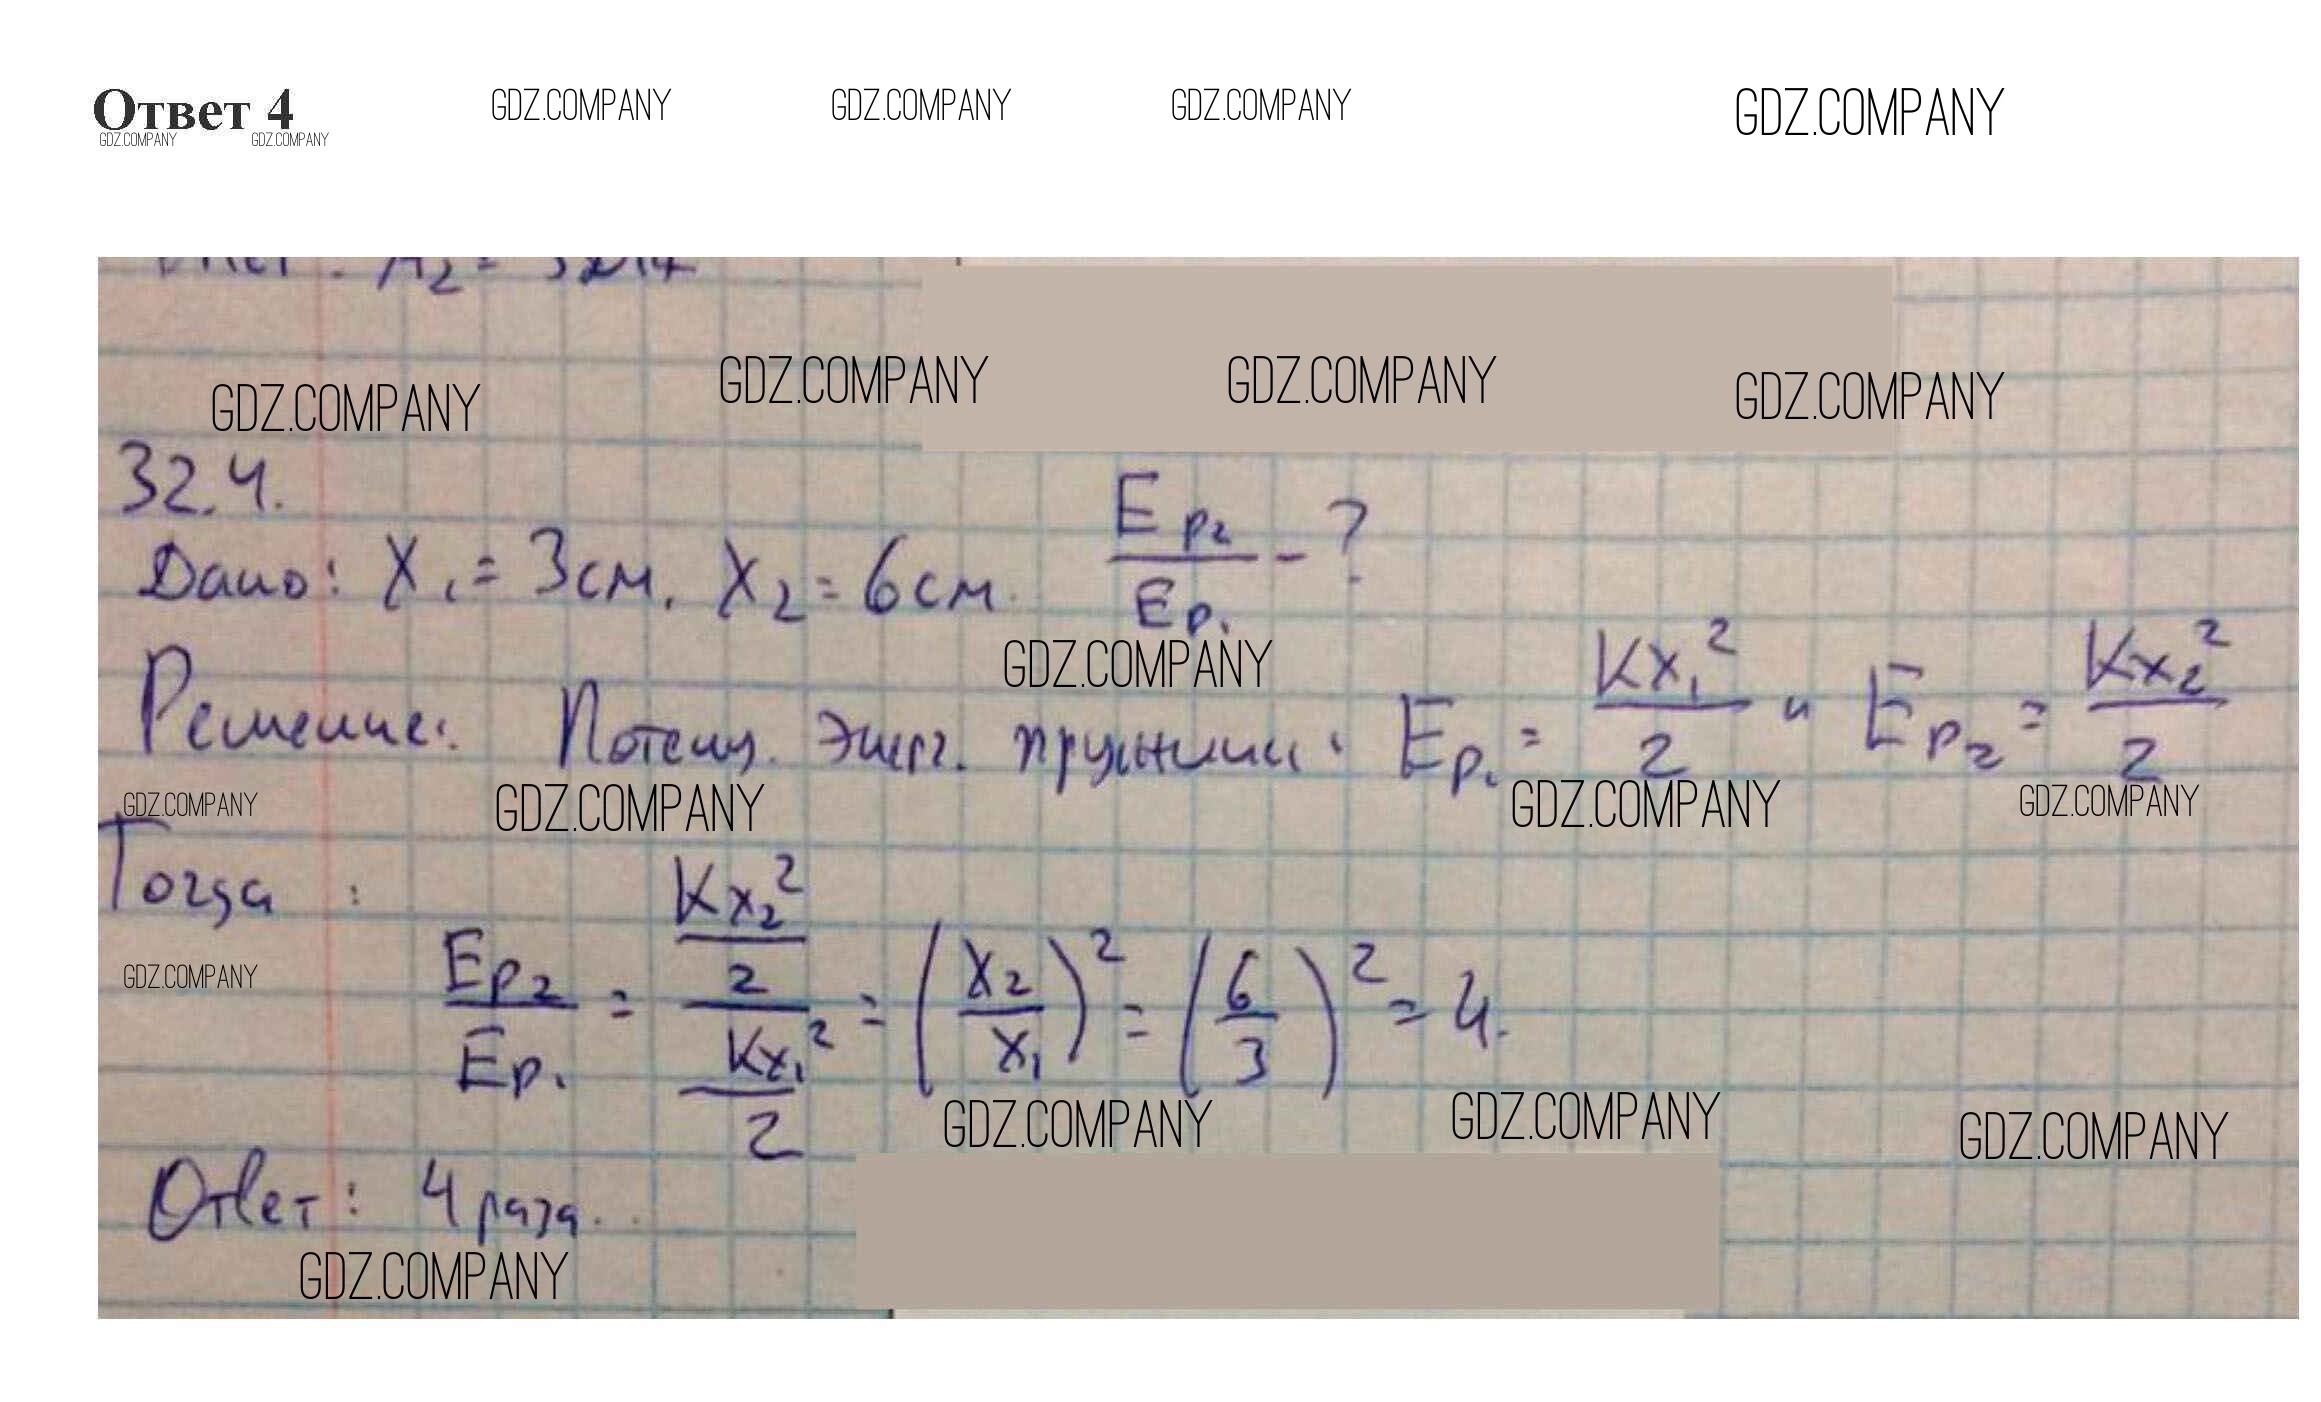 Ответ 4
GDZ.COMPANY GDZ.COMPANY GDZ.COMPANY GDZ.COMPANY
GDZ.COMPANY GDZ.COMPANY
GDZ.COMPANY GDZ.COMPANY GDZ.COMPANY GDZ.COMPANY
32.4.
Дано: X₁ = 3см. X₂ = 6см. Eₚ₂/Eₚ₁ - ?
GDZ.COMPANY
Решение: Потенц. энерг. пружины: Eₚ₁ = Kx₁²/2 и Eₚ₂ = Kx₂²/2
GDZ.COMPANY GDZ.COMPANY GDZ.COMPANY GDZ.COMPANY
Тогда :
Eₚ₂/Eₚ₁ = (Kx₂²/2)/(Kx₁²/2) = (X₂/X₁)² = (6/3)² = 4.
GDZ.COMPANY
GDZ.COMPANY GDZ.COMPANY GDZ.COMPANY
Ответ: 4 раза.
GDZ.COMPANY